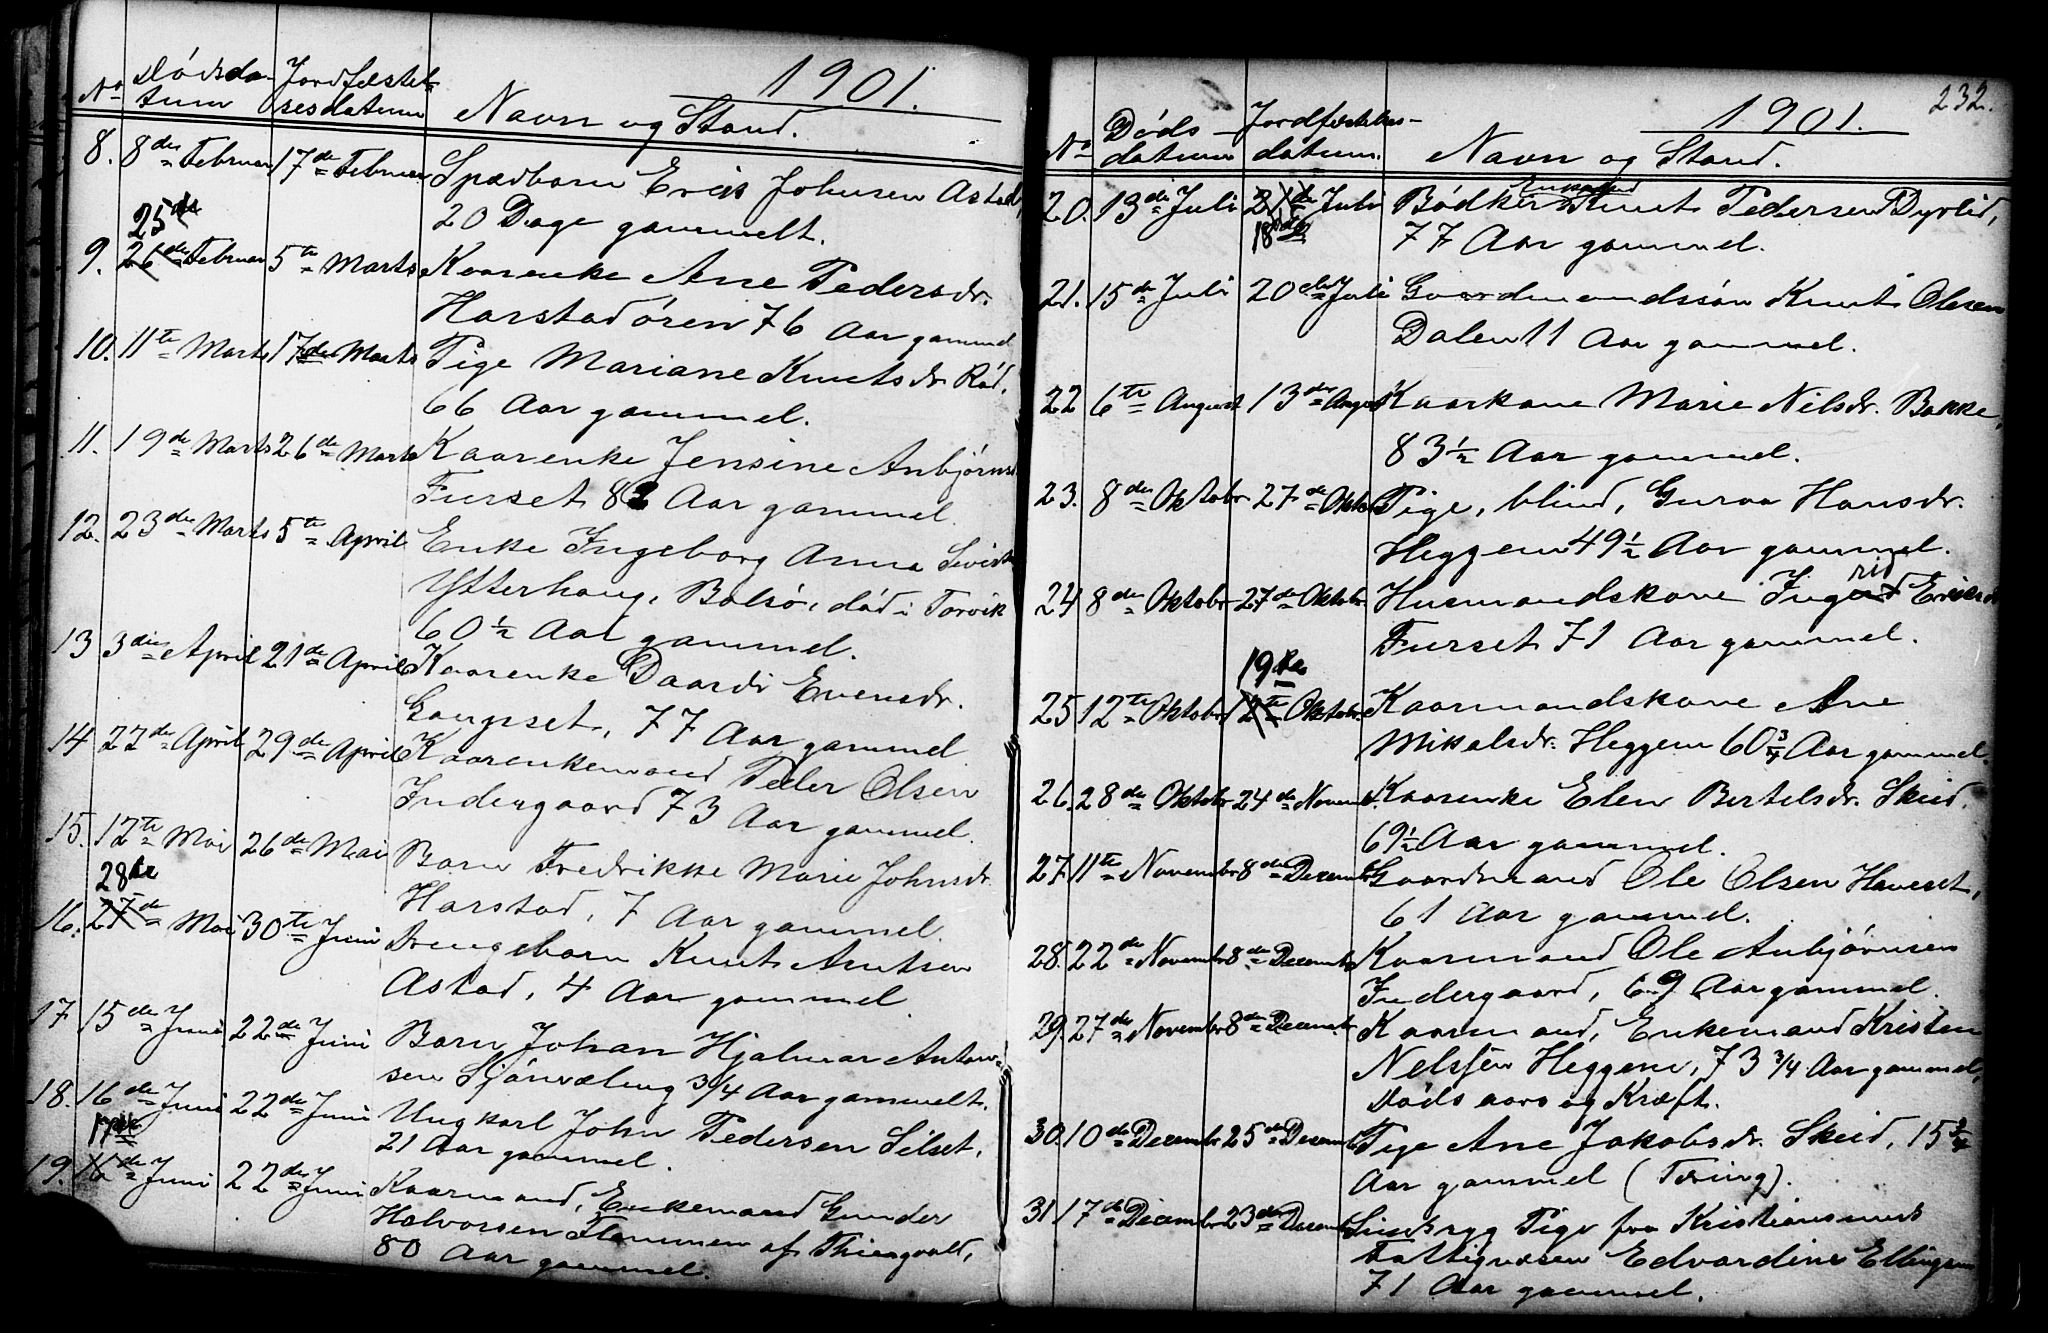 1901.
No Dødsda- Jordfæstel-
tum sesdatum Navn og Stand.
8. 8de Februar 17de Februar Spædbarn Erik Johnsen Astad,
20 Dage gammelt.
25de
9. 26de Februar 5te Marts Kaarenke Ane Pedersdr.
Harstadøren 76 Aar gammel
10. 11te Marts 17de Marts Pige Mariane Knutsdr. Rød,
66 Aar gammel.
11. 19de Marts 26de Marts Kaarenke Jensine Anbjørnsd
Furset 82 Aar gammel.
12. 23de Marts 5te April Enke Ingeborg Anna Sivertsd
Ytterhaug, Bolsø, død i Torvik
60½ Aar gammel.
13 3die April 21de April Kaarenke Baardi Evensdr.
Gaupset, 77 Aar gammel
14 22de April 29de April Kaarenkemand Peder Olsen
Indergaard 73 Aar gammel.
15. 12te Mai 26de Mai Barn Fredrikke Marie Johnsdr
Harstad, 7 Aar gammel.
28de
16. 27de Mai 30te Juni Drengebarn Knut Knutsen
Astad, 4 Aar gammel
17 15de Juni 22de Juni Barn Johan Hjalmar Anton-
sen Sjømæling ¾ Aar gammelt.
18. 16de Juni 22de Juni Ungkarl John Pedersen Silset,
21 Aar gammel.
17de
19. 16de Juni 22de Juni Kaarmand, Enkemand Gunder
Halvorsen Flemmen af Thingvold,
80 Aar gammel.
232.
1901.
No Døds- Jordfæstelses-
datum datum. Navn og Stand.
Enkemand
20. 13de Juli 21de Juli Bødker Knut Pedersen Dyrlid,
18de 77 Aar gammel.
21. 15de Juli 20de Juli Gaardmandssøn Knut Olesen
Dalen 11 Aar gammel.
22 6te August 13de August Kaarkone Marie Nilsdr. Bakke,
83½ Aar gammel.
23. 8de Oktobr 27de Oktobr Pige, blind, Guroa Hansdr.
Heggem 49½ Aar gammel.
rid
24 8de Oktobr 27de Oktobr Husmandskone Ingerd Eriksdr
Furset 71 Aar gammel.
19de
25 12te Oktobr 12te Oktobr Kaarmandskone Ane
Mikalsdr. Heggem 60¾ Aar gammel.
26. 28de Oktobr 24de Novemb. Kaarenke Elen Bertelsdr. Skeid.
69½ Aar gammel.
27. 11te Novembr 8de Decembr Gaardmand Ole Olsen Haveset,
61 Aar gammel.
28. 22de Novembr 8de Decembr Kaarmand Ole Anbjørnsen
Indergaard, 69 Aar gammel.
29. 27de Novembr 8de Decembr Kaarmand, Enkemand Kristen
Nelssen Heggem, 73¾ Aar gammel,
Døds aars og Kræft.
30. 10de Decembr 25de Decemb Pige Ane Jakobsdr. Skeid, 15¾
Aar gammel (Tæring).
31 17de Decembr 23de Decemb Sindsyg Pige fra Kristiansunds
Fattigvæsen Edvardine Ellingsen
71 Aar gammel.